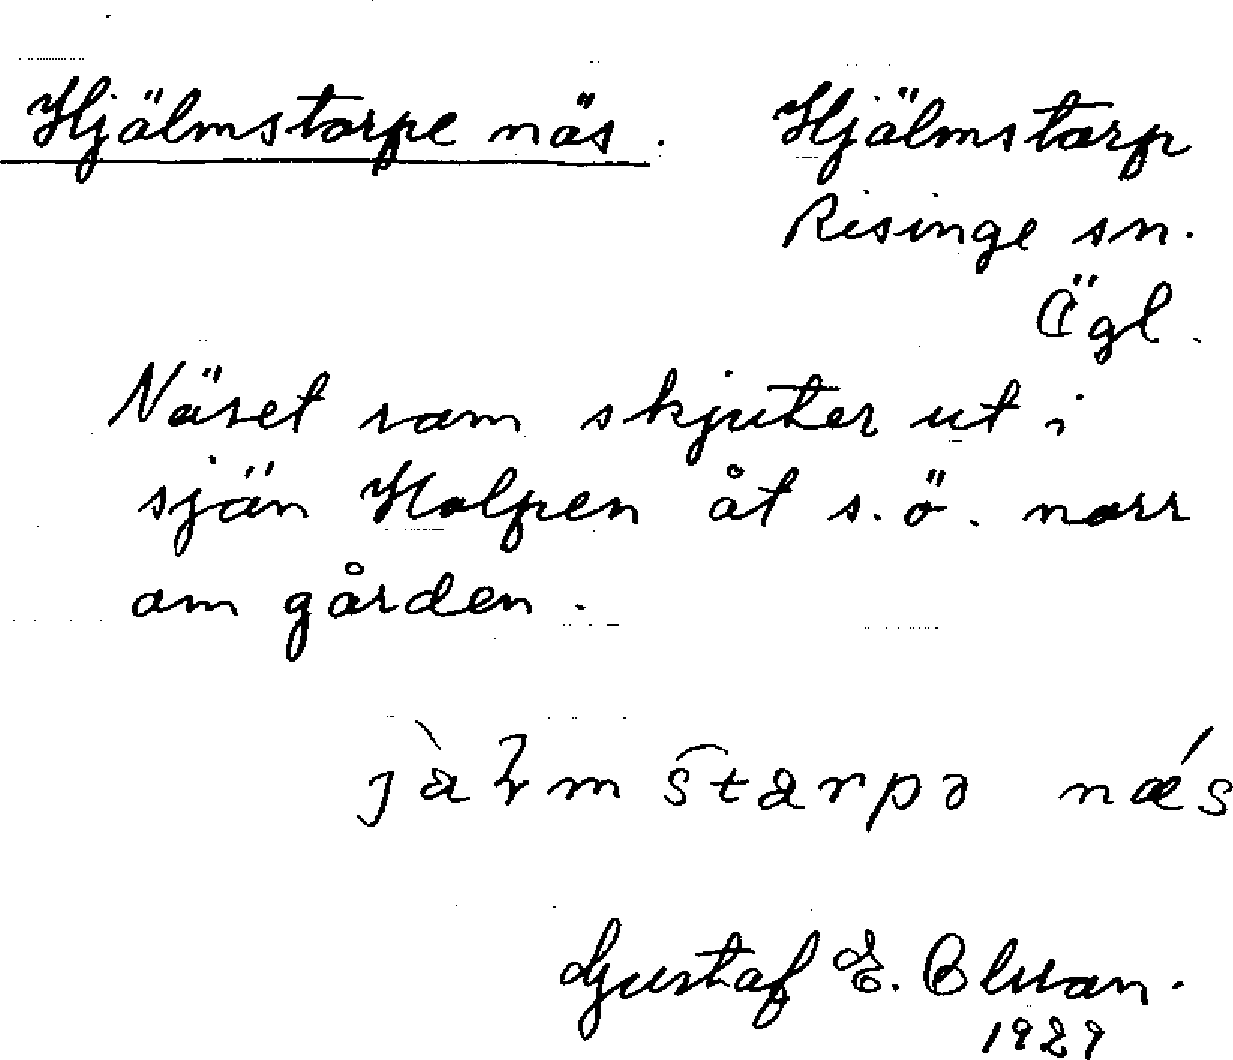 Hjälmstorpe näs. Hjälmstorp
Risinge sn.
Ögl.
Näset som skjuter ut i
sjön Holpen åt s.ö. norr
om gården.
näs
Gustaf E.
1929